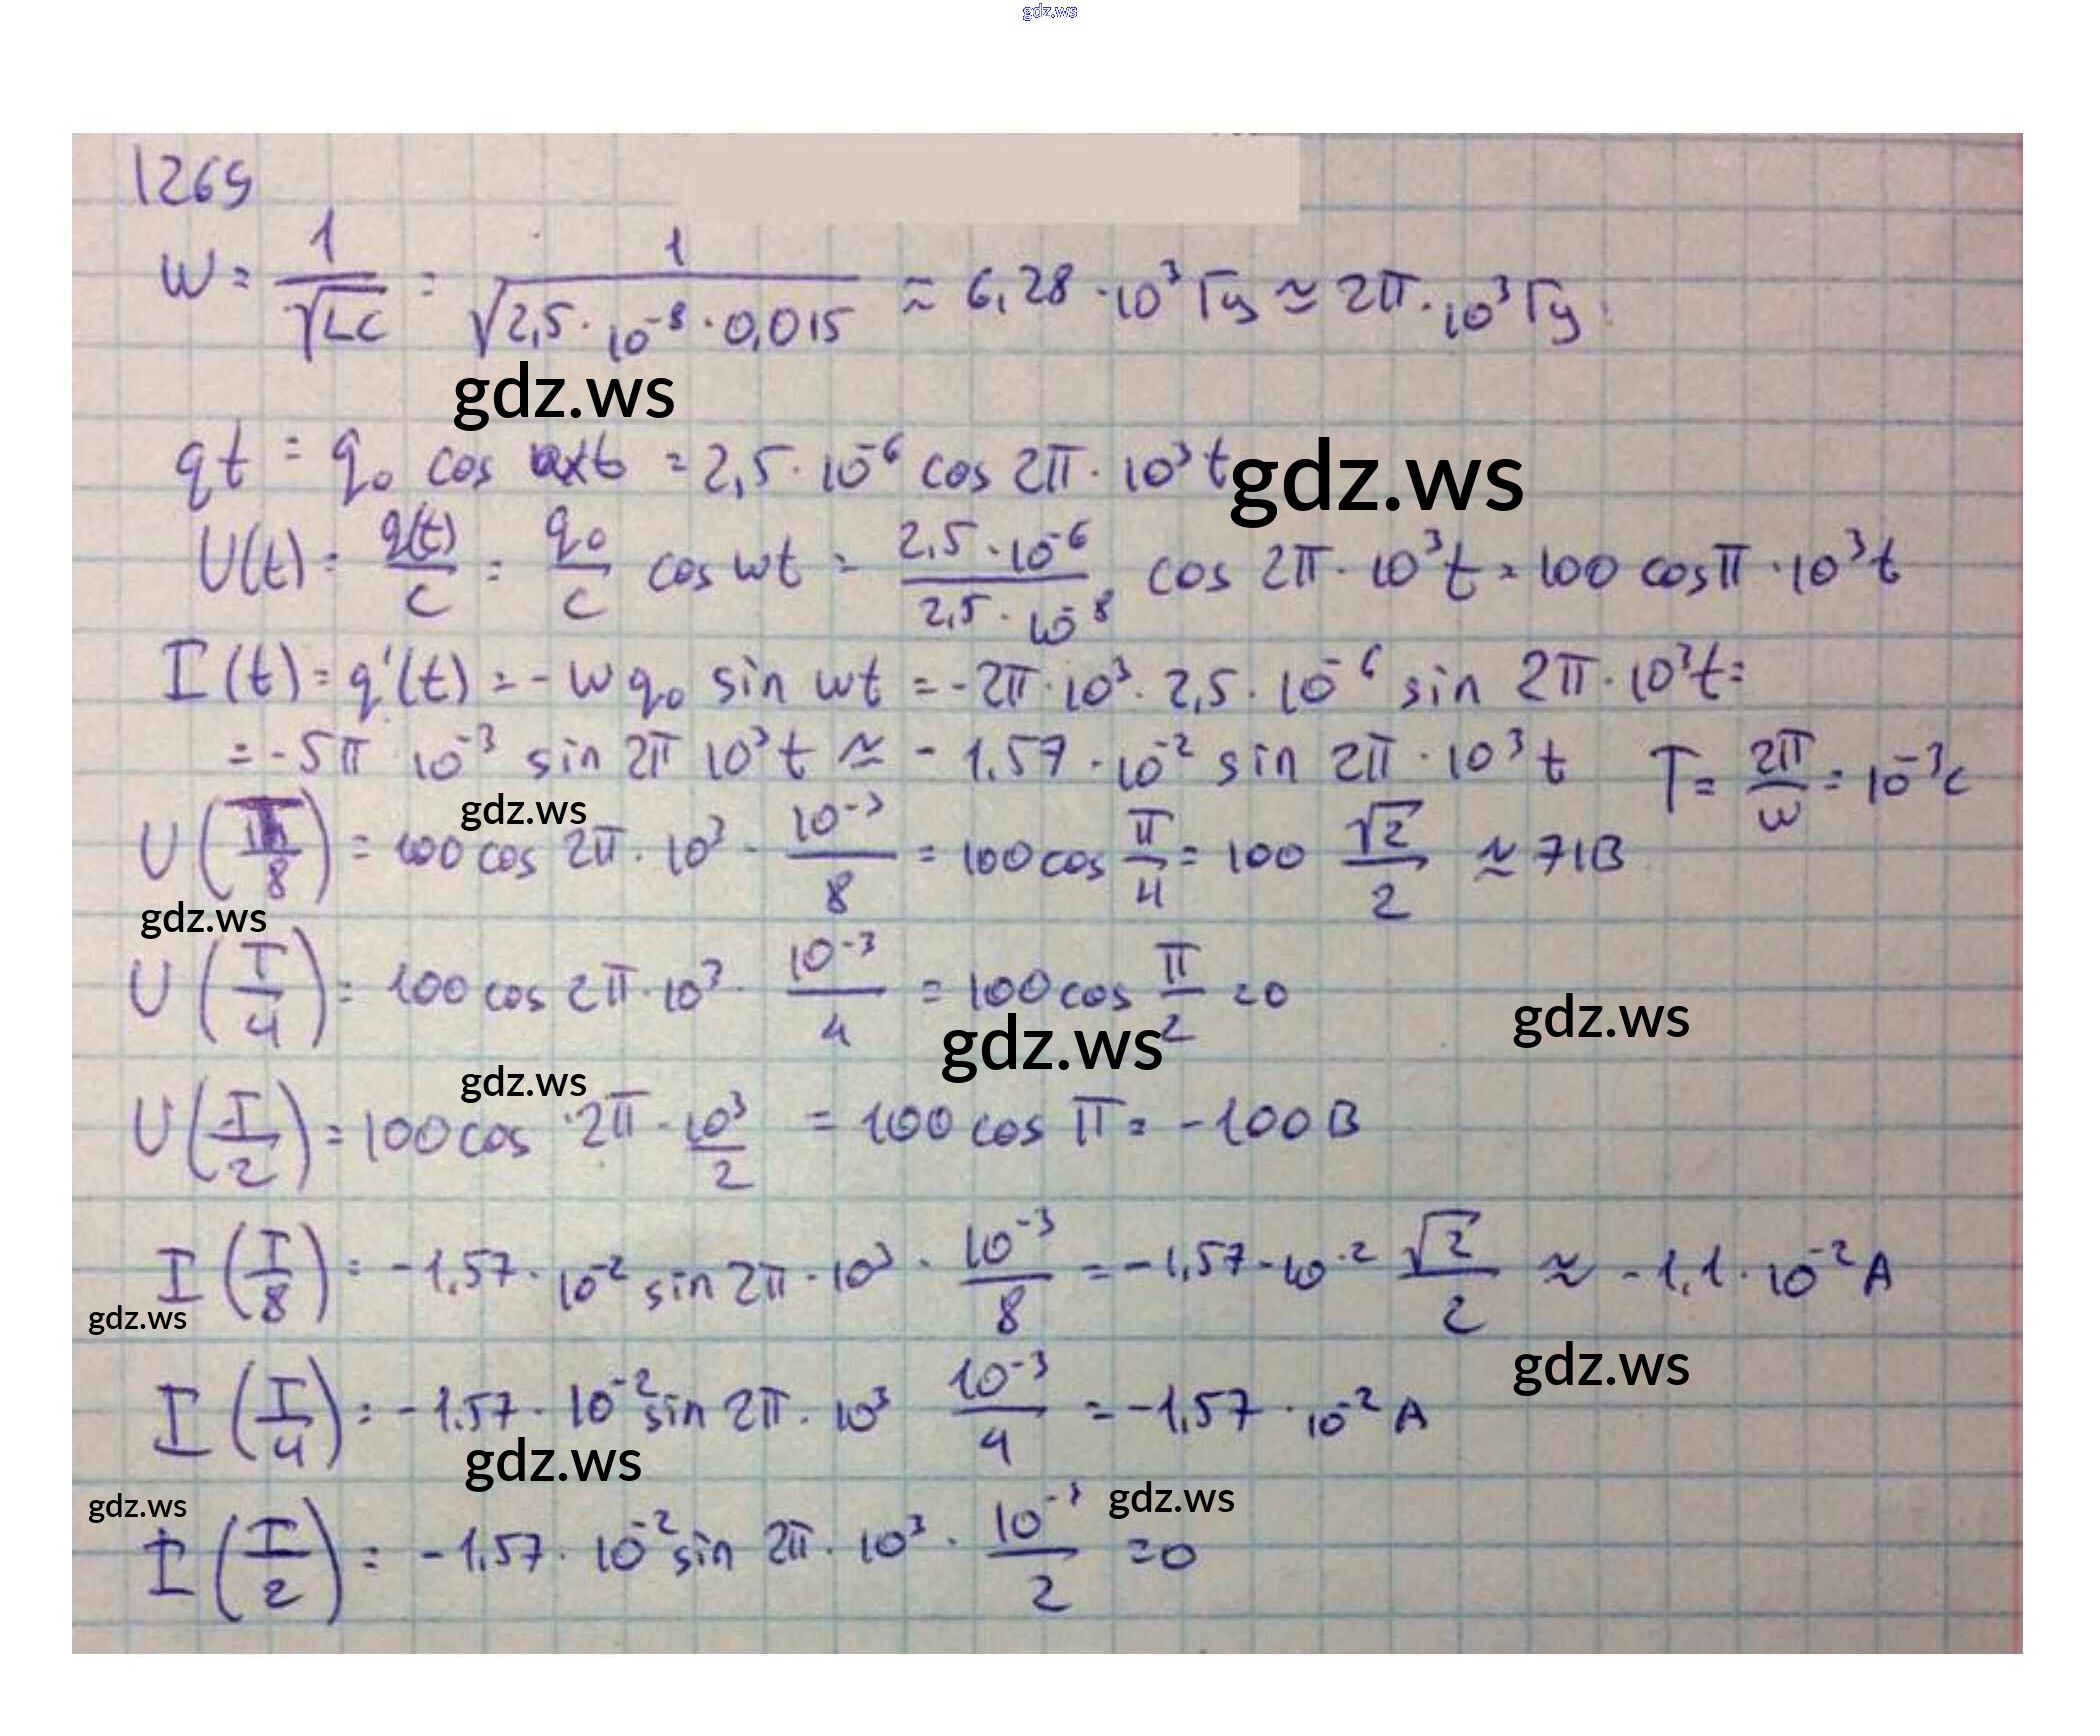 gdz.ws
1265
W = 1/√LC = 1/√2,5 · 10⁻⁸ · 0,015 ≈ 6,28 · 10³ Гц ≈ 2π · 10³ Гц
gdz.ws
qt = q₀ cos = 2,5 · 10⁻⁶ cos 2π · 10³ t
gdz.ws
U(t) = q(t)/c = q₀/c cos wt = 2,5 · 10⁻⁶/2,5 · 10⁻⁸ cos 2π · 10³ t = 100 cos π · 10³ t
I(t) = q'(t) = - w q₀ sin wt = - 2π · 10³ · 2,5 · 10⁻⁶ sin 2π · 10³ t =
= - 5π · 10⁻³ sin 2π 10³ t ≈ - 1,57 · 10⁻² sin 2π · 10³ t T = 2π/w = 10⁻³ c
gdz.ws
U(T/8) = 100 cos 2π · 10³ · 10⁻³/8 = 100 cos π/4 = 100 √2/2 ≈ 71 В
gdz.ws
U(T/4) = 100 cos 2π · 10³ · 10⁻³/4 = 100 cos π/2 = 0
gdz.ws
gdz.ws
gdz.ws
U(T/2) = 100 cos · 2π · 10³/2 = 100 cos π = - 100 В
I(T/8) = - 1,57 · 10⁻² sin 2π · 10³ · 10⁻³/8 = - 1,57 · 10⁻² √2/2 ≈ - 1,1 · 10⁻² А
gdz.ws
gdz.ws
I(T/4) = - 1,57 · 10⁻² sin 2π · 10³ 10⁻³/4 = - 1,57 · 10⁻² А
gdz.ws
gdz.ws
gdz.ws
I(T/2) = - 1,57 · 10⁻² sin 2π · 10³ · 10⁻³/2 = 0